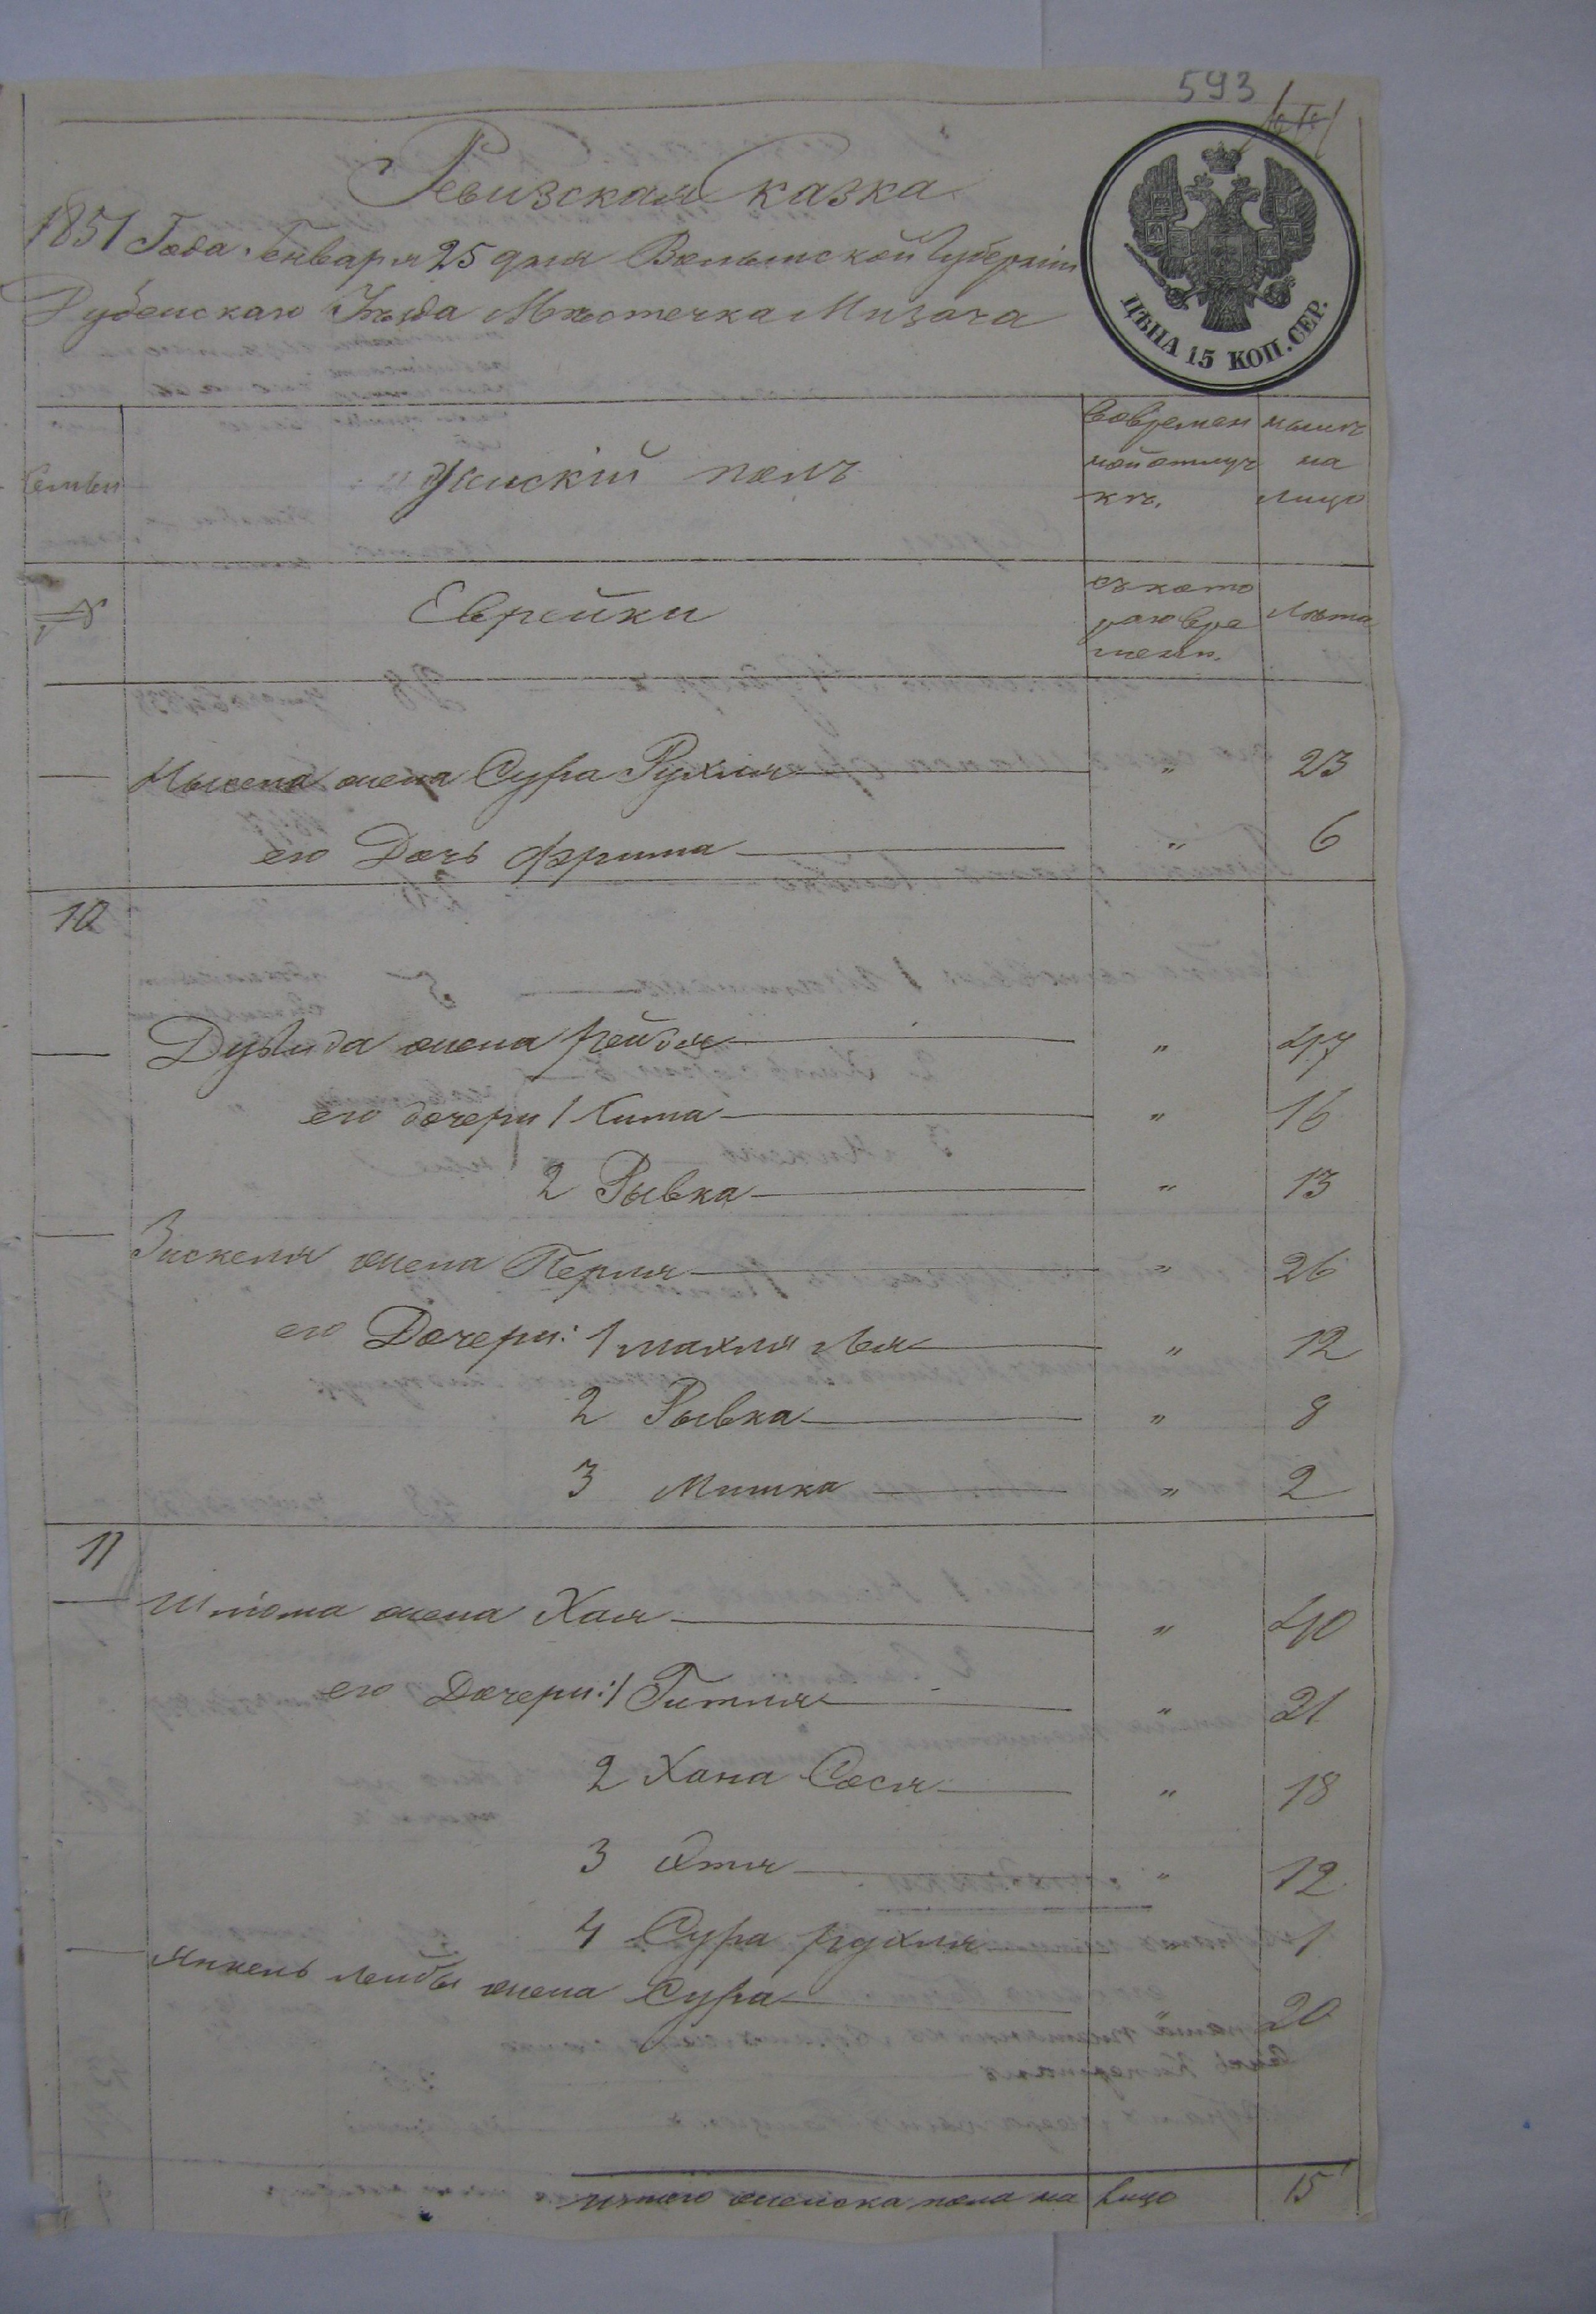 593
Ревизская Сказка
1851 Года Генваря 25 дня Волынской Губернии
Дубенскаго Уъзда Мъстечка Мизоча
ЦѢНА 15 КОП. СЕР.
Семьи
Женский полъ
Вовремен
ной отлуч
къ.
нынъ
на
лицо
№
Еврейки
съ кото
раго вре
мени.
Лъта
жена Сура Рухля " 23
его Дочь Фрима " 6
10
Дувида жена Рейзя " 47
его дочери 1 Хима " 16
2 Рывка " 13
Зискеля жена Перля " 26
его Дочери: 1 Махля Лея " 12
2 Рывка " 8
3 Мишка " 2
11
Шлома жена Хая " 40
его Дочери: 1 Гитля " 21
2 Хана Сося " 18
3 " 12
4 Сура Рухля 1
Янкель Лейбы жена Сура " 20
итого женска пола на лицо 15